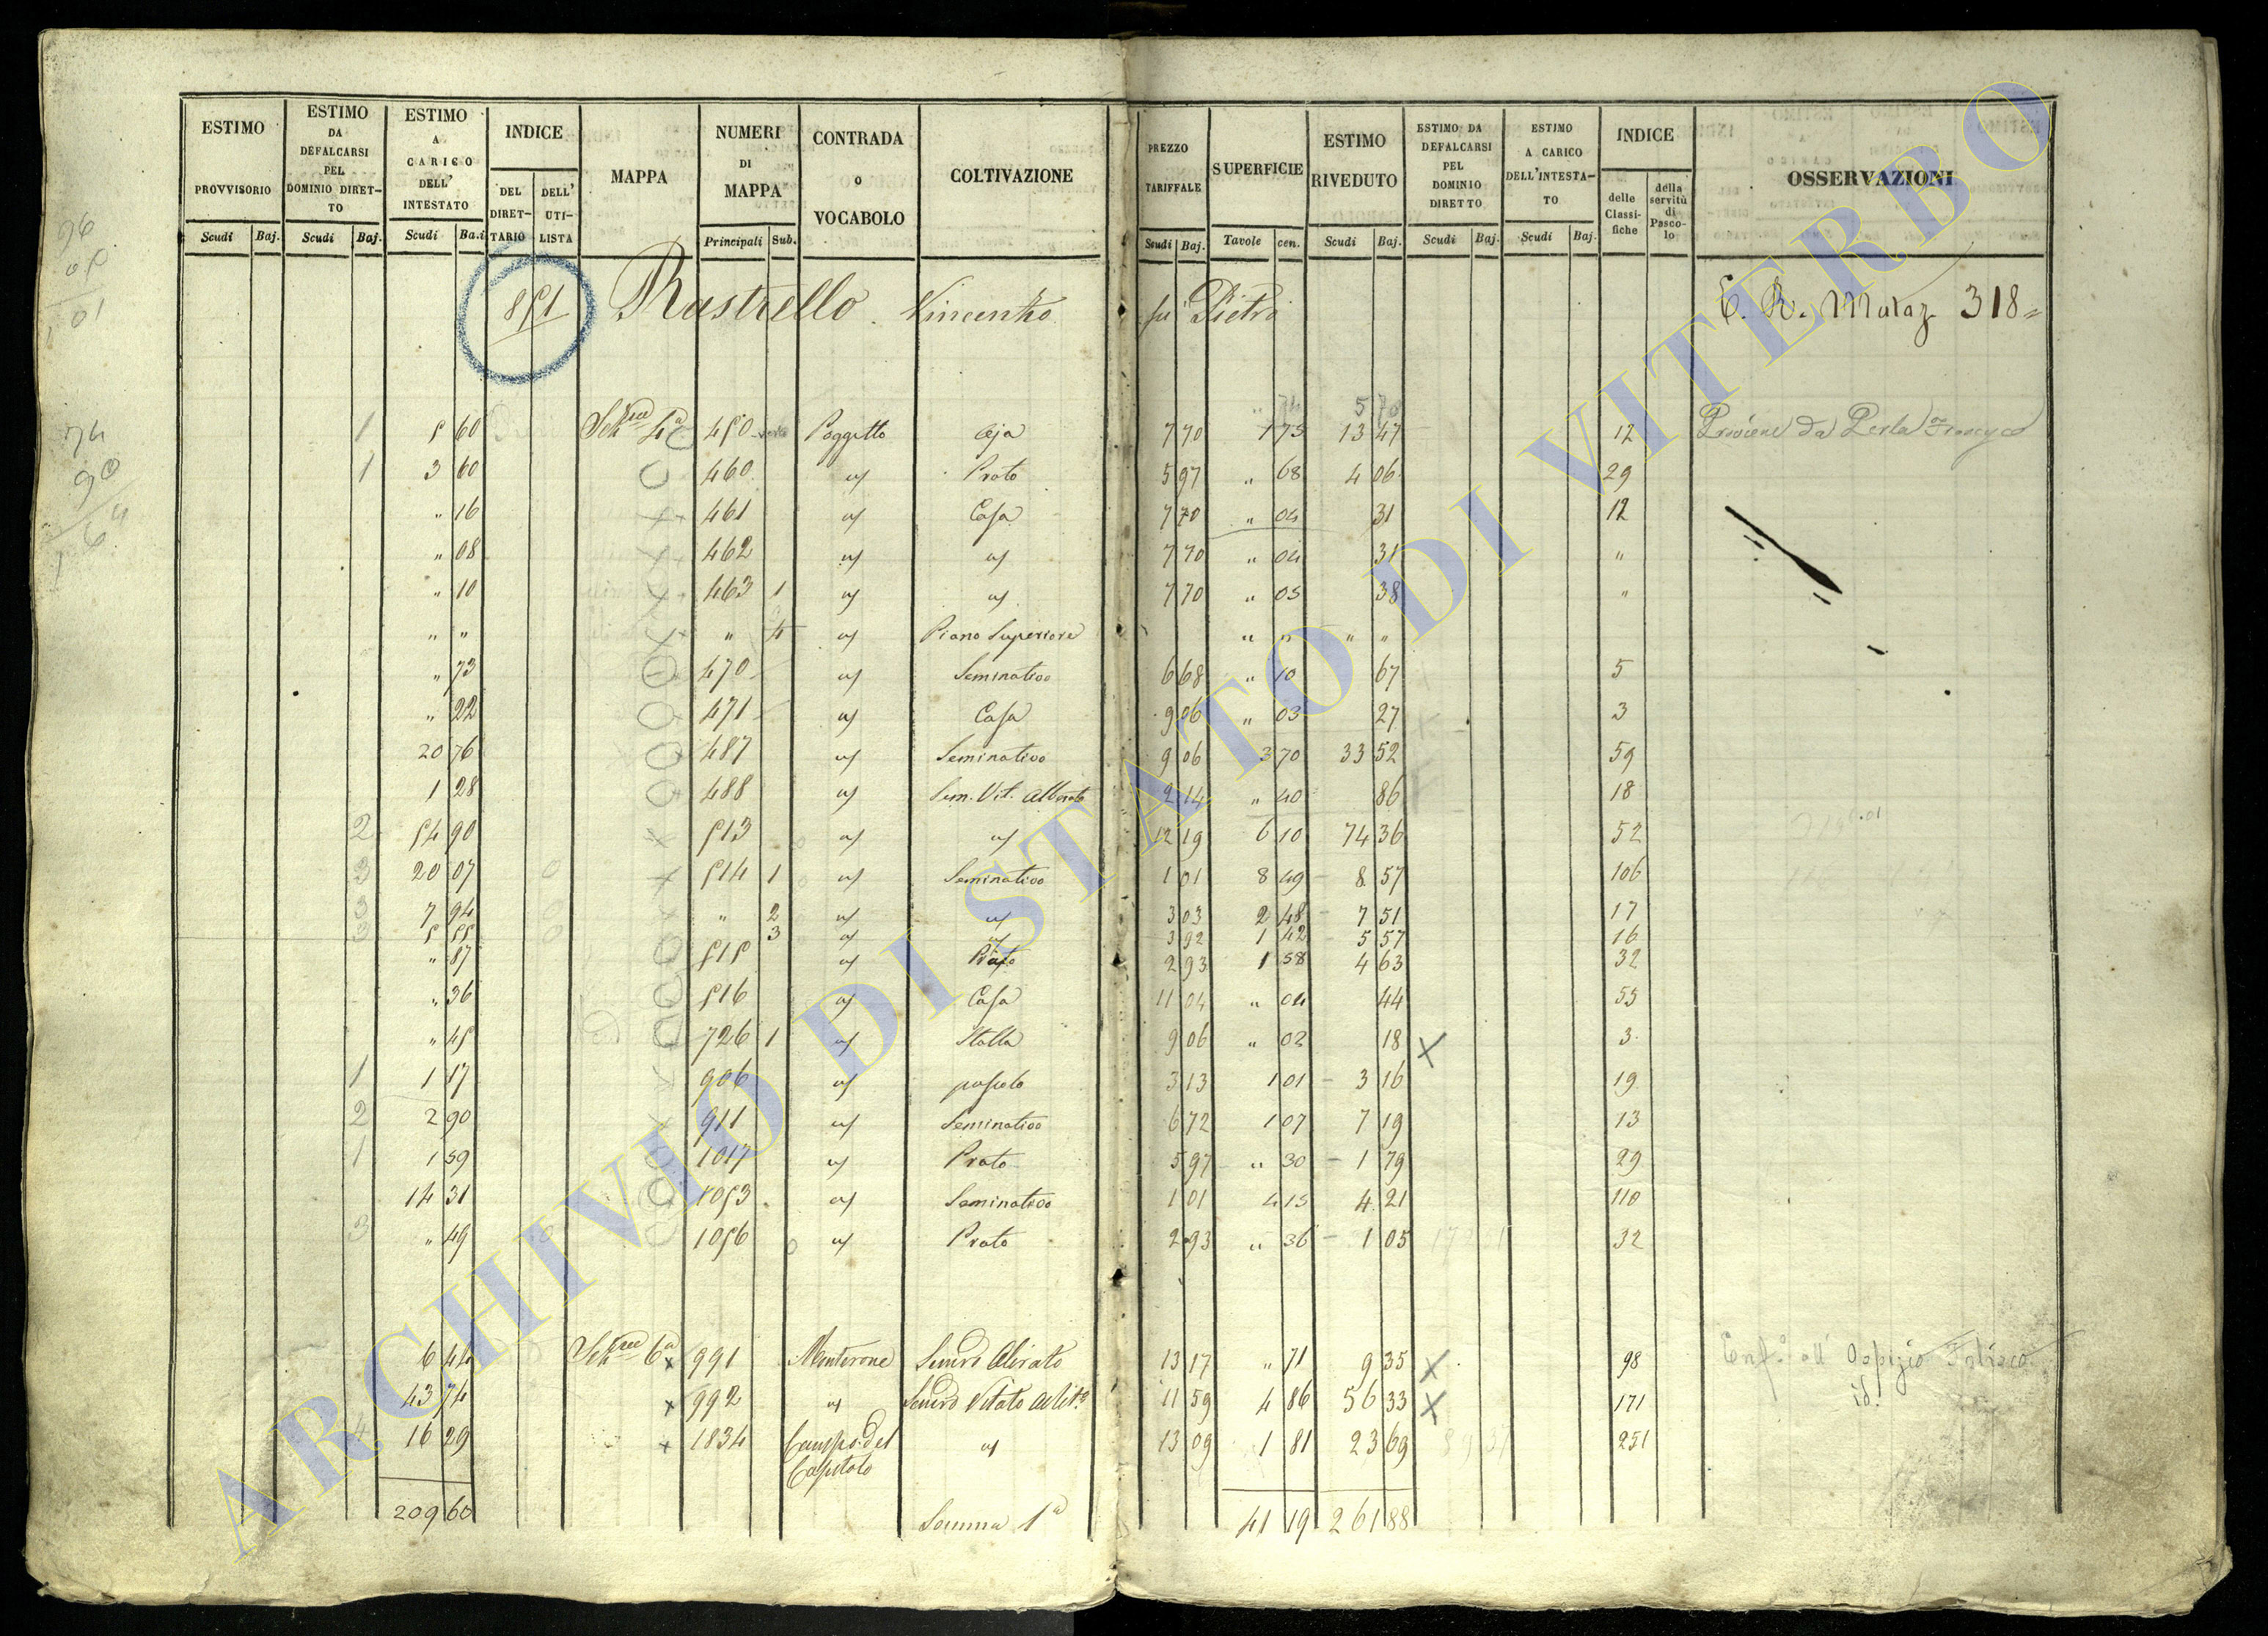 ESTIMO PROVVISORIO Scudi Baj.
ESTIMO DA DEFALCARSI PEL DOMINIO DIRETTO Scudi Baj.
ESTIMO A CARICO DELL' INTESTATO Scudi Ba.i
INDICE DEL DIRETTARIO DELL' UTILISTA
MAPPA
NUMERI DI MAPPA Principali Sub.
CONTRADA o VOCABOLO
COLTIVAZIONE
PREZZO TARIFFALE Scudi Baj.
SUPERFICIE Tavole cen.
ESTIMO RIVEDUTO Scudi Baj.
ESTIMO DA DEFALCARSI PEL DOMINIO DIRETTO Scudi Baj.
ESTIMO A CARICO DELL'INTESTATO Scudi Baj.
INDICE delle Classifiche della servitù di Pascolo
OSSERVAZIONI
851 Rastrello Vincenzo fu Pietro 318
74 5 70
1 5 60 4a 450 Poggetto Aja 7 70 1 75 13 47 12 Proviene da
1 3 60 460 Prato 5 97 " 68 4 06 29
" 16 461 Casa 7 70 " 04 31 12
" 08 462 7 70 " 04 31 "
" 10 463 1 7 70 " 05 38 "
" " " 4 Piano Superiore " " " "
" 73 470 Seminativo 6 68 " 10 67 5
" 22 471 Casa 9 06 " 03 27 3
20 76 487 Seminativo 9 06 3 70 33 52 59
1 28 488 Sem. Vit. Alberato 2 14 " 40 86 18
2 54 90 513 12 19 6 10 74 36 52
3 20 07 514 1 Seminativo 1 01 8 49 8 57 106
3 7 94 " 2 3 03 2 48 7 51 17
3 5 55 3 3 92 1 42 5 57 16
" 87 515 Prato 2 93 1 58 4 63 32
" 36 516 Casa 11 04 " 04 44 55
" 45 726 1 Stalla 9 06 " 02 18 3
1 1 17 906 pascolo 3 13 1 01 3 16 19
2 2 90 911 Seminativo 6 72 1 07 7 19 13
1 1 59 1017 Prato 5 97 " 30 1 79 29
14 31 1053 Seminativo 1 01 4 15 4 21 110
3 " 49 1056 Prato 2 93 " 36 1 05 32
6 44 6a 991 Monterone 13 17 " 71 9 35 98 Ospizio
43 74 992 11 59 4 86 56 33 171 id.
4 16 29 1834 Campo del 13 09 1 81 23 69 251
Capitolo
209 60 Somma 1a 41 19 261 88
ARCHIVIO DI STATO DI VITERBO